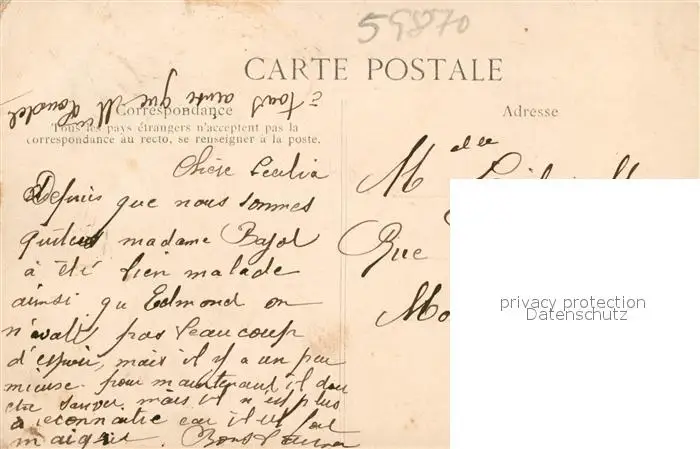 59870
CARTE POSTALE
Correspondance
Tous les pays étrangers n'acceptent pas la
correspondance au recto, se renseigner à la poste.
Adresse
Chère Cecilia
Depuis que nous sommes
quitéus madame Bajol
à été bien malade
ainsi qu Edmond on
n'avait pas beaucoup
d'espoir, mais il y a un peu
mieuse. pour maintenant il doit
etre sauver mais il n'est plus
à reconnaitre car il est fort
maigrit. Bons
à tous ainsi que M
Melle
Rue
Mo
privacy protection
Datenschutz